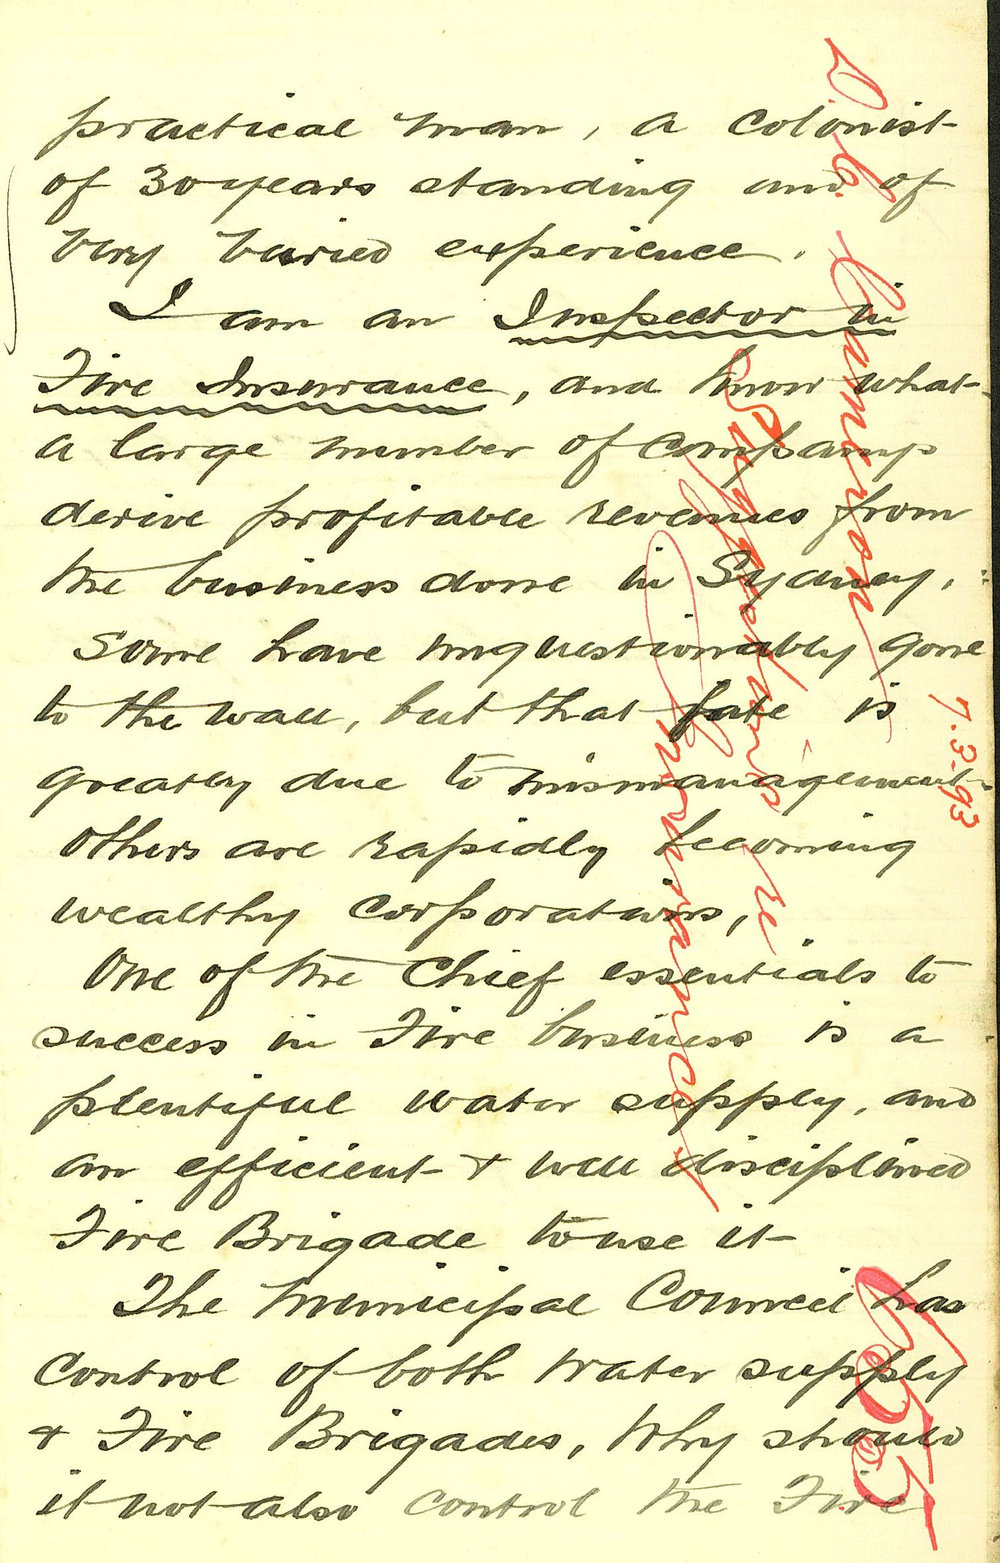 practical man, a colonist
of 30 years standing and of
very varied experience.
I am an Inspector in
Fire Insurance, and know what
a large number of compamp
derive profitable revenues from
the business done in Sydney,
Some have unquestionably gone
to the wall, but that fate is
greatly due to mismanagement
others are rapidly becoming
wealthy corporations,
One of the Chief essentials to
success in Fire business is a
plentiful water supply, and
an efficient & well disciplined
Fire Brigade to use it
The Municipal Council has
control of both water supply
& Fire Brigades, Why should
it not also control the Fire
Cameron
Suggestions re
Insurance
7.3.93
655